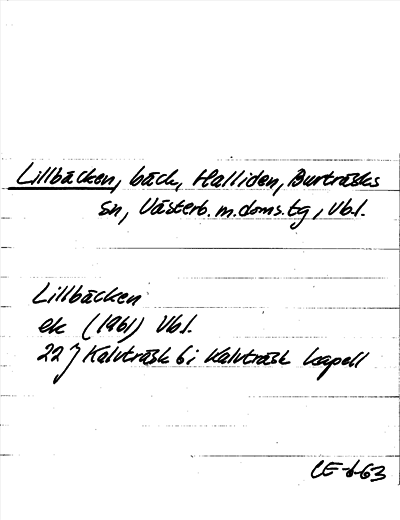 Lillbäcken, bäck, Halliden, Burträsks
sn, Västerb. m. doms. tg, Vbl.
Lillbäcken
ek (1961) Vbl.
22 J Kalvträsk 6 i Kalvträsk kapell
CE-63